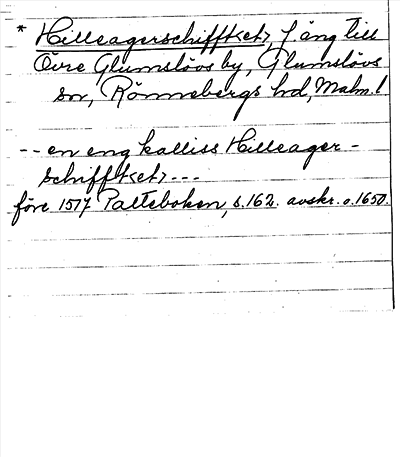 * Hilleagerschifft<et>, f. äng till
Övre Glumslövs by, Glumslövs
sn, Rönnebergs hd, Malm. l
-- en eng kalliss Hilleager-
schifft<et> ---
före 1517 Palteboken, s. 162. avskr. o. 1650.